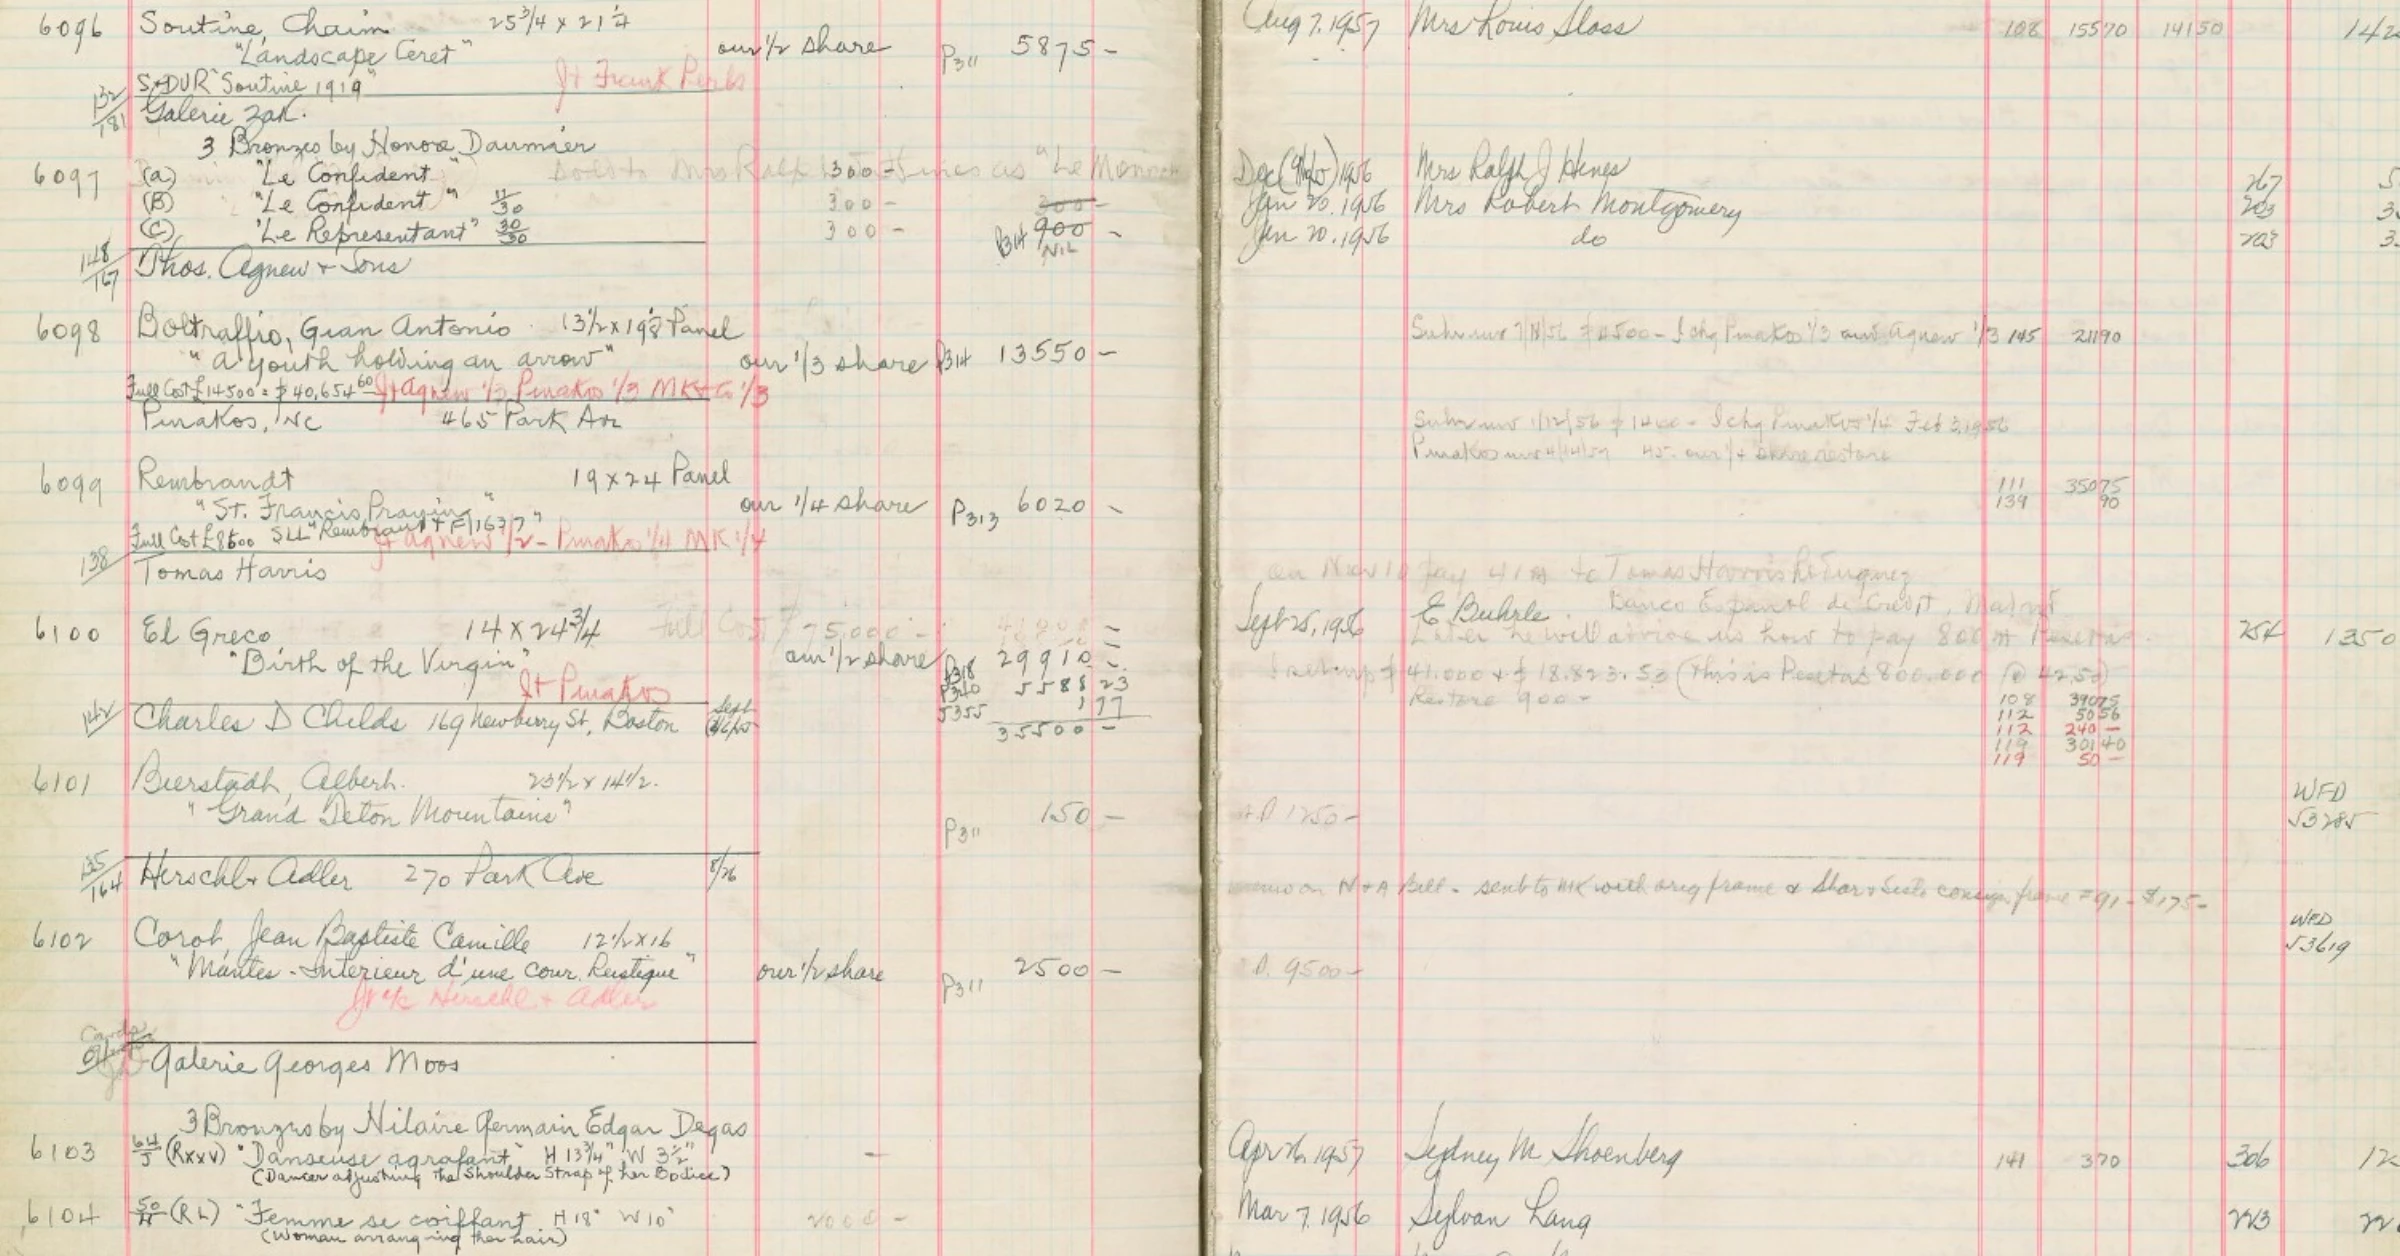 6096 Soutine, Chaim 25 3/4 x 21 1/4
"Landscape Ceret" our 1/2 share P311 5875 -
S+DUR "Soutine 1919" Jt Frank Perls
132/181 Galerie Zak.
3 Bronzes by Honore Daumier
6097 (a) "Le Confident" 300 -
(B) "Le Confident" 11/30 300 - 300 -
(C) "Le Representant" 30/30 300 - P314 900 -
NIL
148/167 Thos. Agnew + Sons
6098 Boltraffio, Gian Antonio 13 1/2 x 19 3/8 Panel
"a youth holding an arrow" our 1/3 share P314 13550 -
Full Cost £14500 = $40,654 60 Jt Agnew 1/3 Pinakos 1/3 MK+Co 1/3
Pinakos, Nc 465 Park Av
6099 Rembrandt 19 x 24 Panel
"St. Francis Praying" our 1/4 share P313 6020 -
SLL "Rembrandt F 1637"
Full Cost £8600 Jt Agnew 1/2 - Pinakos 1/4 MK 1/4
138 Tomas Harris
6100 El Greco 14 x 24 3/4 Full Cost 75,000 -
"Birth of the Virgin" our 1/2 share P318 29910 -
Jt Pinakos P340 5588 23
5355 1 77
35500 -
142 Charles D Childs 169 Newberry St, Boston Sept
6101 Bierstadt, Albert. 23 1/2 x 14 1/2.
"Grand Teton Mountains" P311 150 -
135/164 Herschl + Adler 270 Park Ave 8/26
6102 Corot, Jean Baptiste Camille 12 1/2 x 16
"Mantes - Interieur d'une cour Rustique" our 1/2 share P311 2500 -
Jt a/c Herschl + Adler
Galerie Georges Moos
3 Bronzes by Hilaire Germain Edgar Degas
6103 64/J (RXXV) "Danseuse agrafant" H 13 3/4" W 3 1/2" -
(Dancer adjusting the Shoulder Strap of her Bodice)
6104 50/H (RL) "Femme se coiffant H 18" W 10" 2000 -
(Woman arranging her hair)
Aug 7. 1957 Mrs Louis Sloss 108 155 70 141 50 142
Dec 1956 Mrs Ralph J Hines 267 5
Jan 20. 1956 Mrs Robert Montgomery 203 3
Jan 20. 1956 do 203 3
Suhr inv 7/18/56 $4500 - I chg Pinakos 1/3 and Agnew 1/3 145 211 90
Suhr inv 1/12/56 $1400 - I chg Pinakos 1/4 Feb 3, 1956
Pinakos inv 4/14/59 45. our 1/4 share restore
111 350 75
139 90
on Nov 10 Pay 41 m to Tomas Harris
Sept 25, 1956 E Buhrle. Banco Espanol de Credit, Madrid 254 1350
Later he will advise us how to pay 800 m Pesetas.
$41.000 + $18.823.53 (This is Pesetas 800.000 @ 42.50)
Restore 900 -
108 390 75
112 50 56
112 240 -
119 301 40
119 50 -
WFD
53285
1250 -
memo on H+A Bill - sent to MK with orig frame + consign frame #91 - $175 -
WFD
53619
9500 -
Apr 26, 1957 Sydney M Shoenberg 141 3 70 306 12
Mar 7. 1956 Sylvan Lang 223 22